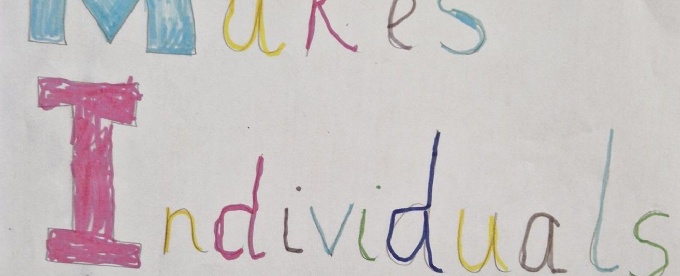 Makes
Individuals